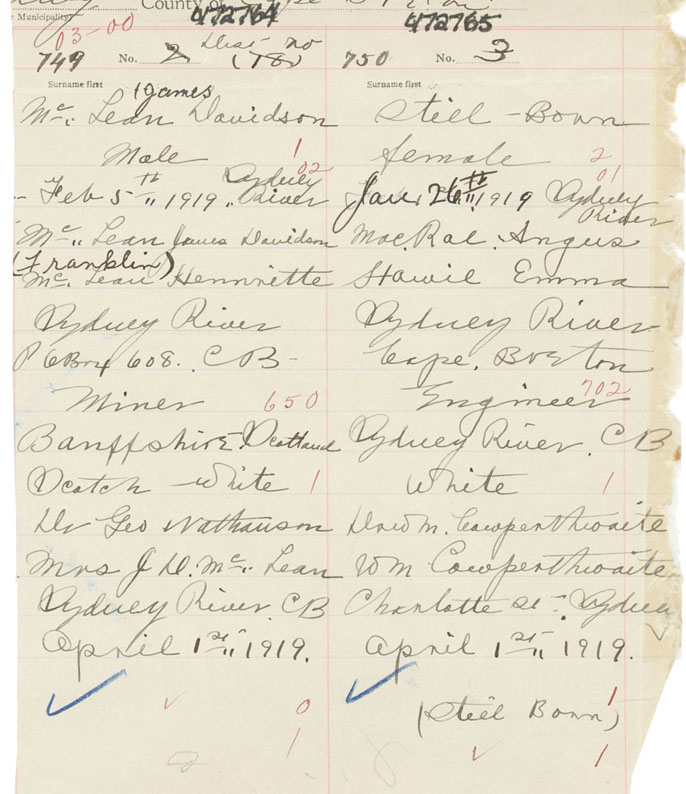 County of
r Municipality
472764
472765
03-00
Dist. no
749 No. 2 (78)
750 No. 3
Surname first
(James
Mc. Lean Davidson
Male 1
02
Feb 5 th 1919 Sydney River
Mc. Lean James Davidson
(Franklin)
Mc. Lean Hennriette
Sydney River
P O Box 608. C B-
Miner 650
Banffshire Scotland
Scotch - White 1
Dr Geo Nathanson
Mrs J D. Mc. Lean
Sydney River CB
April 1st 1919.
0
1
Surname first
Stiel - Bown
female 2
01
Jan. 26th 1919 Sydney River
MacRae. Angus
Emma
Sydney River
Cape. Breton
Engineer 702
Sydney River. CB
White 1
Dr W m. Cowperthwaite
W m Cowperthwaite
Charlotte st. Sydney
April 1st 1919.
1
(Stiel Bown)
1